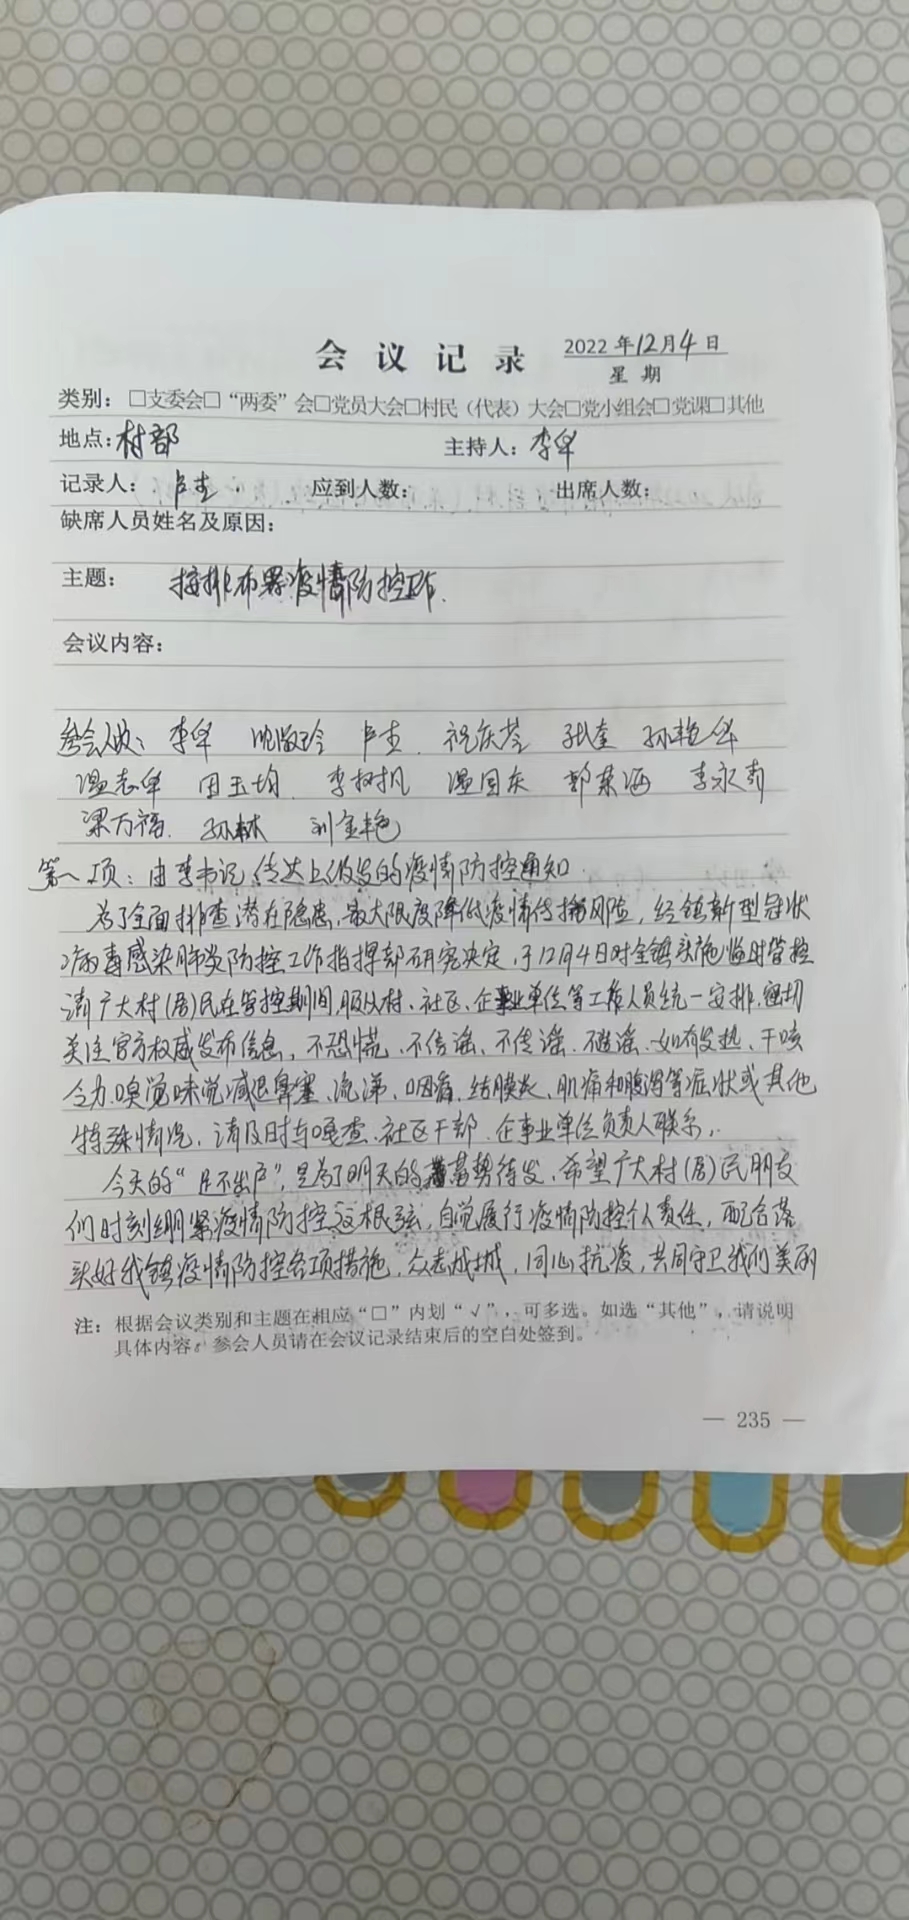 会议记录 2022年12月4日
星期
类别：□支委会□“两委”会□党员大会□村民（代表）大会□党小组会□党课□其他
地点：村部 主持人：李华
记录人：卢杰 应到人数： 出席人数：
缺席人员姓名及原因：
主题：按排布署疫情防控工作.
会议内容：
参会人员：李华 沈淑玲 卢杰 祝庆芩 张奎 孙艳华
温志华 田玉均 李树帆 温国东 郭荣海 李永青
梁万福 孙林 刘金艳
第一项：由李书记传达上级发的疫情防控通知
为了全面排查潜在隐患，最大限度降低疫情传播风险，经镇新型冠状
病毒感染肺炎防控工作指挥部研究决定，于12月4日对全镇实施临时管控
请广大村(居)民在管控期间，服从村、社区、企事业单位等工作人员统一安排，密切
关注官方权威发布信息，不恐慌、不信谣、不传谣、不造谣.如有发热、干咳
乏力、嗅觉味觉减退鼻塞、流涕、咽痛、结膜炎、肌痛和腹泻等症状或其他
特殊情况，请及时与嘎查、社区干部、企事业单位负责人联系，
今天的“足不出户”，是为了明天的蓄势待发，希望广大村(居)民朋友
们时刻绷紧疫情防控这根弦，自觉履行疫情防控个人责任，配合落
实好我镇疫情防控各项措施，众志成城，同心抗疫，共同守卫我们美丽
注：根据会议类别和主题在相应“□”内划“√”，可多选。如选“其他”，请说明
具体内容。参会人员请在会议记录结束后的空白处签到。
— 235 —